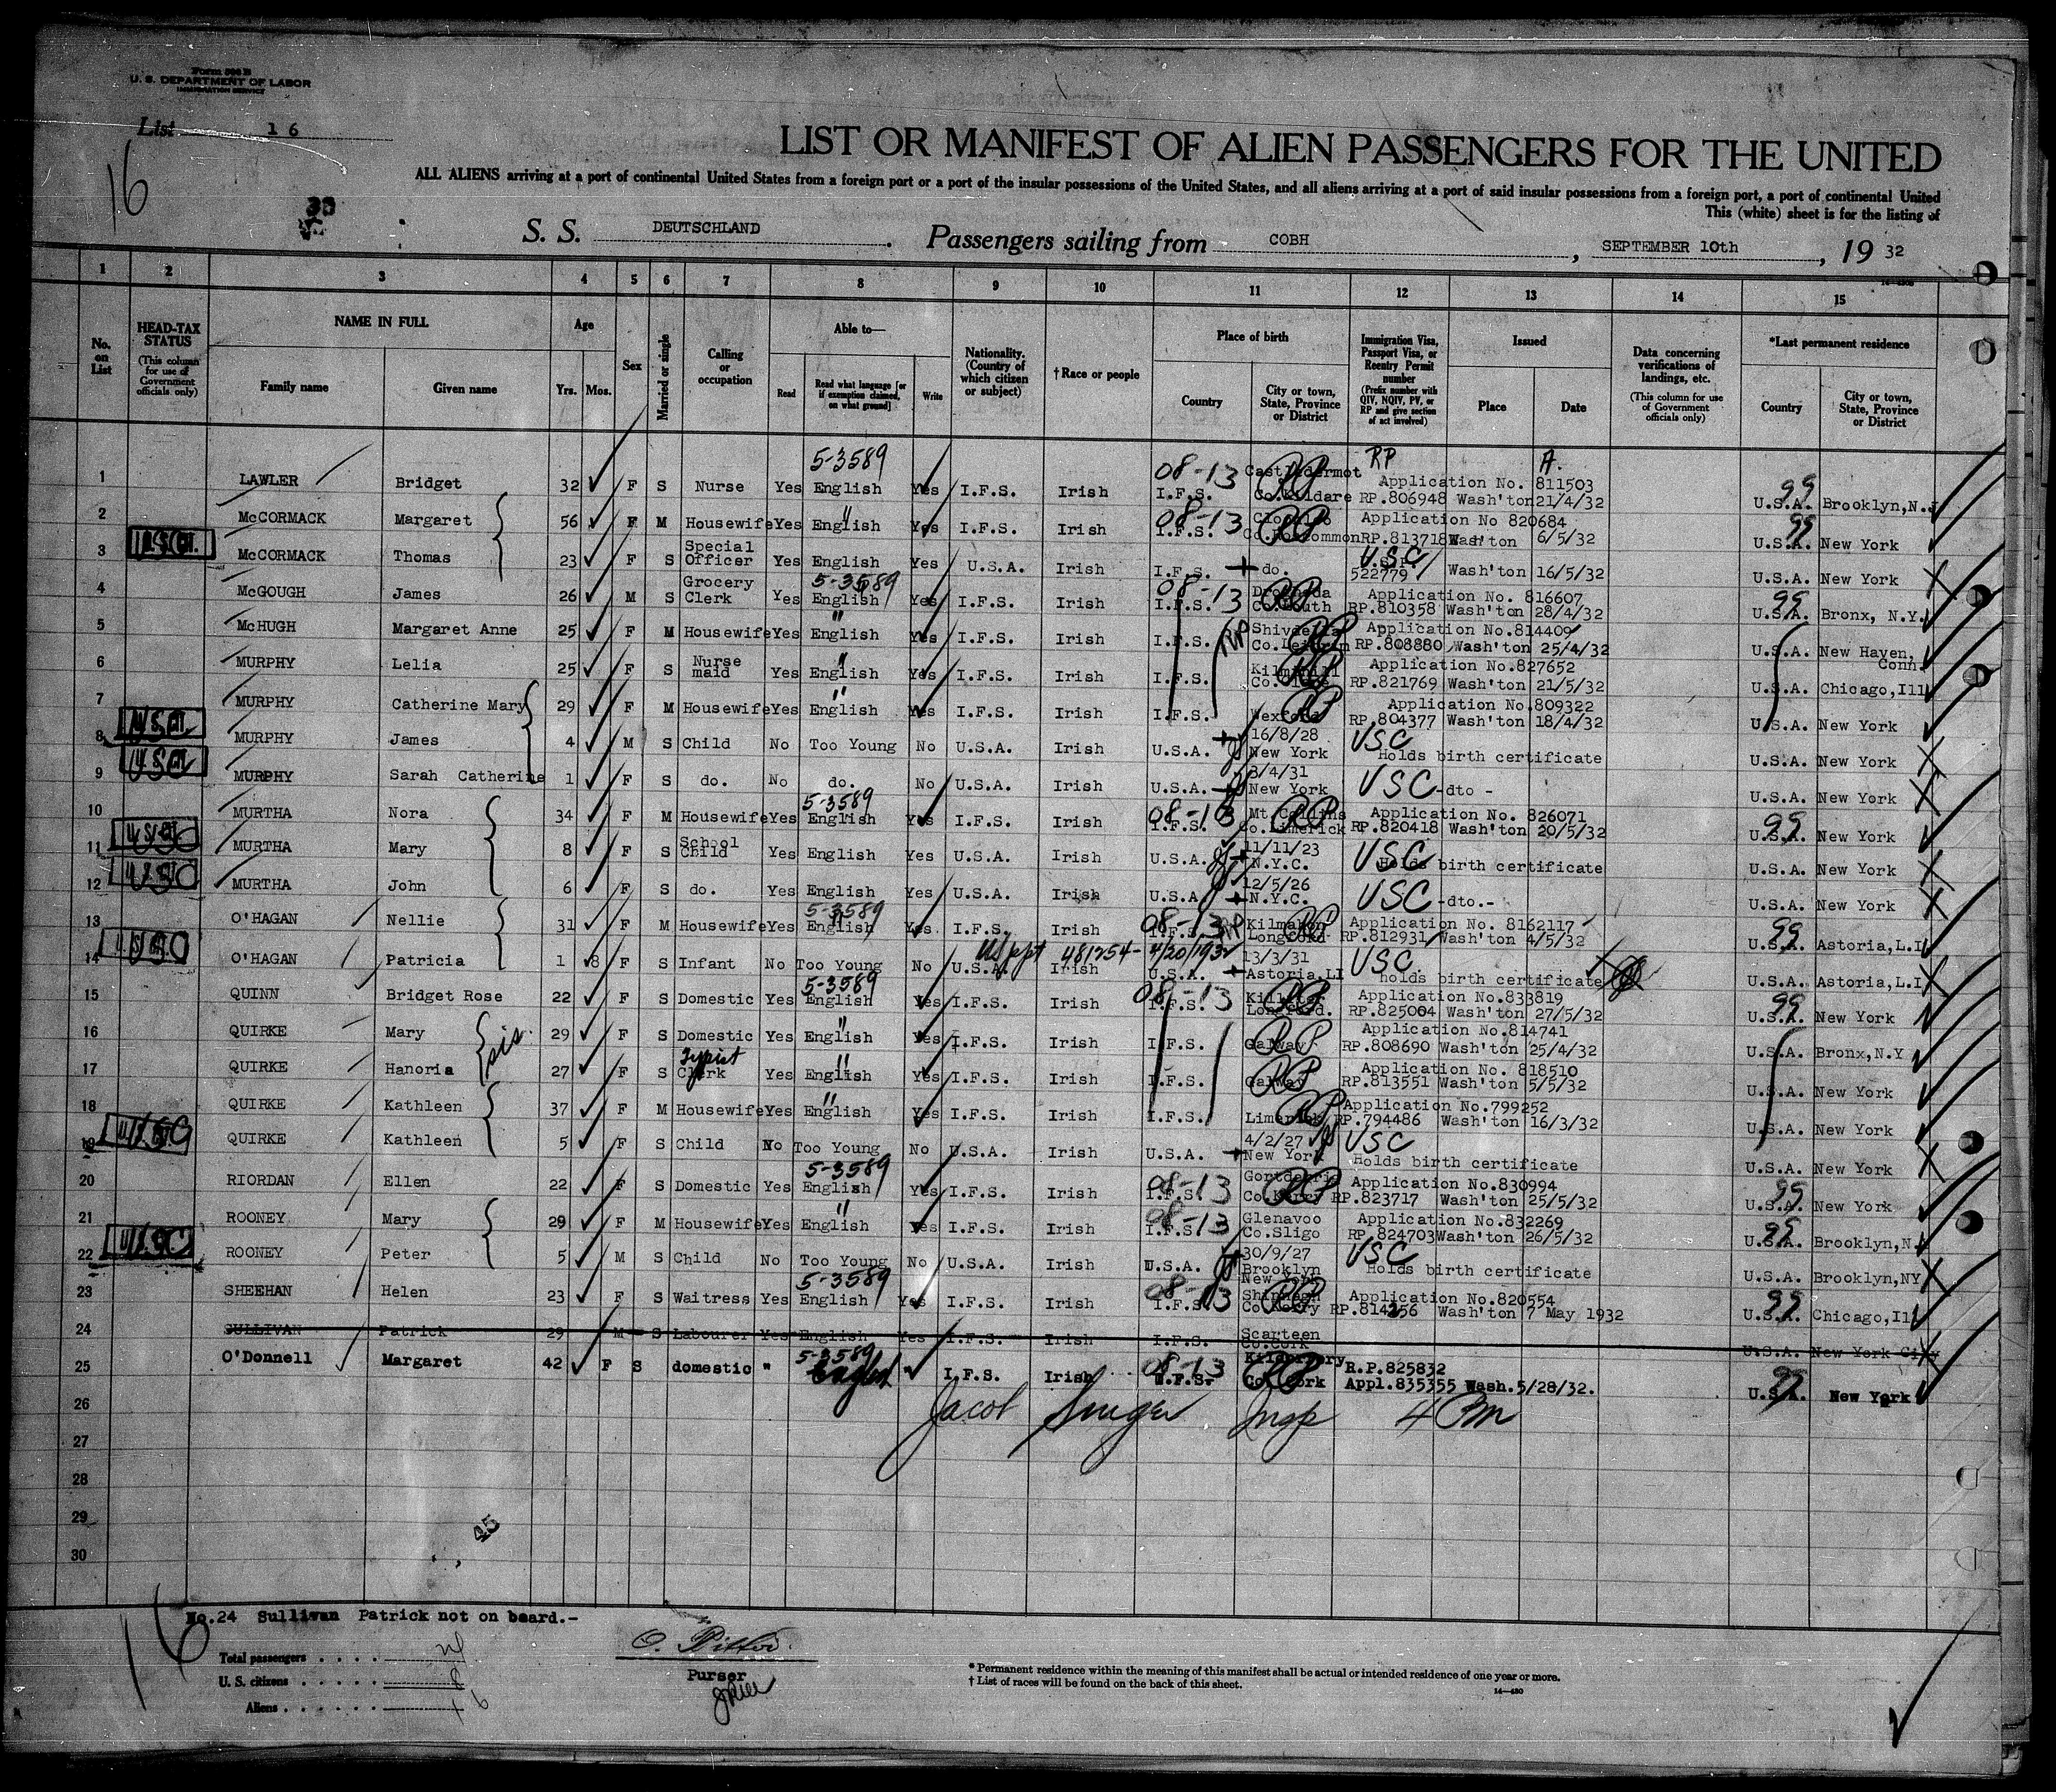 Form 500 B
U. S. DEPARTMENT OF LABOR
IMMIGRATION SERVICE
List 16
16
LIST OR MANIFEST OF ALIEN PASSENGERS FOR THE UNITED
ALL ALIENS arriving at a port of continental United States from a foreign port or a port of the insular possessions of the United States, and all aliens arriving at a port of said insular possessions from a foreign port, a port of continental United
This (white) sheet is for the listing of
S. S. DEUTSCHLAND. Passengers sailing from COBH, SEPTEMBER 10th, 19 32
1 2 3 4 5 6 7 8 9 10 11 12 13 14 15
No. on List
HEAD-TAX STATUS (This column for use of Government officials only)
NAME IN FULL
Family name Given name
Age Yrs. Mos.
Sex
Married or single
Calling or occupation
Able to— Read Read what language [or if exemption claimed, on what ground] Write
Nationality. (Country of which citizen or subject)
†Race or people
Place of birth Country City or town, State, Province or District
Immigration Visa, Passport Visa, or Reentry Permit number (Prefix number with QIV, NQIV, PV, or RP and give section of act involved)
Issued Place Date
Data concerning verifications of landings, etc. (This column for use of Government officials only)
*Last permanent residence Country City or town, State, Province or District
5-3589 RP A.
1 LAWLER Bridget 32 F S Nurse Yes English Yes I.F.S. Irish 08-13 I.F.S. Castledermot Co.Kildare RP Application No. 811503 RP.806948 Wash'ton 21/4/32 99 U.S.A. Brooklyn,N.
2 McCORMACK Margaret 56 F M Housewife Yes English Yes I.F.S. Irish 08-13 I.F.S. RP Application No 820684 RP.813718 Wash'ton 6/5/32 99 U.S.A. New York
3 McCORMACK Thomas 23 F S Special Officer Yes English Yes U.S.A. Irish I.F.S. do. USC 522779 Wash'ton 16/5/32 U.S.A. New York
4 McGOUGH James 26 M S Grocery Clerk Yes 5-3589 English Yes I.F.S. Irish 08-13 I.F.S. Drogheda Co.Louth RP Application No. 816607 RP.810358 Wash'ton 28/4/32 99 U.S.A. Bronx, N.Y.
5 McHUGH Margaret Anne 25 F M Housewife Yes English Yes I.F.S. Irish I.F.S. RP Co.Leitrim Application No.814409 RP.808880 Wash'ton 25/4/32 U.S.A. New Haven, Conn.
6 MURPHY Lelia 25 F S Nurse maid Yes English Yes I.F.S. Irish I.F.S. RP Application No.827652 RP.821769 Wash'ton 21/5/32 U.S.A. Chicago,Ill
7 MURPHY Catherine Mary 29 F M Housewife Yes English Yes I.F.S. Irish I.F.S. Wexford RP Application No.809322 RP.804377 Wash'ton 18/4/32 U.S.A. New York
8 MURPHY James 4 M S Child No Too Young No U.S.A. Irish U.S.A. 16/8/28 New York USC Holds birth certificate U.S.A. New York
9 MURPHY Sarah Catherine 1 F S do. No do. No U.S.A. Irish U.S.A. 3/4/31 New York USC -dto - U.S.A. New York
10 MURTHA Nora 34 F M Housewife Yes 5-3589 English Yes I.F.S. Irish 08-13 I.F.S. Mt.Collins Co.Limerick RP Application No. 826071 RP.820418 Wash'ton 20/5/32 99 U.S.A. New York
11 MURTHA Mary 8 F S School Child Yes English Yes U.S.A. Irish U.S.A. 11/11/23 N.Y.C. USC Holds birth certificate U.S.A. New York
12 MURTHA John 6 F S do. Yes English Yes U.S.A. Irish U.S.A. 12/5/26 N.Y.C. USC -dto.- U.S.A. New York
13 O'HAGAN Nellie 31 F M Housewife Yes 5-3589 English Yes. I.F.S. Irish 08-13 I.F.S. RP Longford Application No. 8162117 RP.812931 Wash'ton 4/5/32 99 U.S.A. Astoria,L.I
US ppt 481254- 4/20/1932
14 O'HAGAN Patricia 1 8 F S Infant No Too Young No U.S.A. Irish U.S.A. 13/3/31 Astoria,LI USC holds birth certificate U.S.A. Astoria,L.I
15 QUINN Bridget Rose 22 F S Domestic Yes 5-3589 English Yes I.F.S. Irish 08-13 I.F.S. Longford. RP Application No.833819 RP.825004 Wash'ton 27/5/32 99 U.S.A. New York
16 QUIRKE Mary sis. 29 F S Domestic Yes English Yes I.F.S. Irish I.F.S. Galway RP Application No.814741 RP.808690 Wash'ton 25/4/32 U.S.A. Bronx,N.Y
17 QUIRKE Hanoria 27 F S Typist Clerk Yes English Yes I.F.S. Irish I.F.S. Galway RP Application No. 818510 RP.813551 Wash'ton 5/5/32 U.S.A. New York
18 QUIRKE Kathleen 37 F M Housewife Yes English Yes I.F.S. Irish I.F.S. Limerick RP Application No.799252 RP.794486 Wash'ton 16/3/32 U.S.A. New York
19 QUIRKE Kathleen 5 F S Child No Too Young No U.S.A. Irish U.S.A. 4/2/27 New York USC Holds birth certificate U.S.A. New York
20 RIORDAN Ellen 22 F S Domestic Yes 5-3589 English Yes I.F.S. Irish 08-13 I.F.S. Co.Kerry RP Application No.830994 RP.823717 Wash'ton 25/5/32 99 U.S.A. New York
21 ROONEY Mary 29 F M Housewife Yes English Yes I.F.S. Irish 08-13 I.F.S. Glenavoo Co.Sligo Application No.832269 RP.824703 Wash'ton 26/5/32 99 U.S.A. Brooklyn,N.
22 ROONEY Peter 5 M S Child No Too Young No U.S.A. Irish U.S.A. 30/9/27 Brooklyn New York USC Holds birth certificate U.S.A. Brooklyn,NY
23 SHEEHAN Helen 23 F S Waitress Yes 5-3589 English Yes I.F.S. Irish 08-13 I.F.S. Co.Kerry RP Application No.820554 RP.814256 Wash'ton 7 May 1932 99 U.S.A. Chicago,Ill
24 SULLIVAN Patrick 29 M S Labourer Yes English Yes I.F.S. Irish I.F.S. Scarteen Co.Cork U.S.A. New York City
25 O'Donnell Margaret 42 F S domestic " 5-3589 English " I.F.S. Irish 08-13 I.F.S. Co.Cork RP R.P.825832 Appl.835355 Wash.5/28/32. 99 U.S.A. New York
26 Jacob Singer Insp 4 Pm
27
28
29
30
45
16
No.24 Sullivan Patrick not on board.-
Total passengers . . . . 24
U. S. citizens . . . . . 8
Aliens . . . . . . 16
O. Pitter.
Purser
* Permanent residence within the meaning of this manifest shall be actual or intended residence of one year or more.
† List of races will be found on the back of this sheet.
14—480